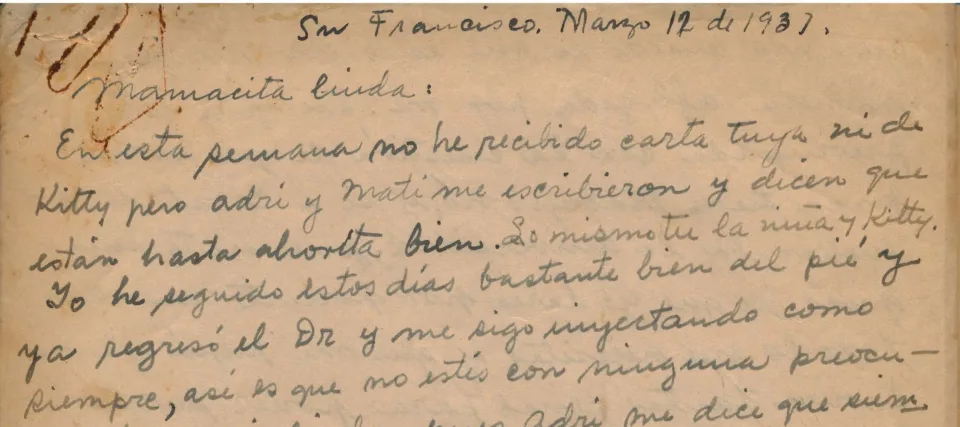 Sn Francisco. Marzo 12 de 1931.
Mamacita linda:
En esta semana no he recibido carta tuya ni de
Kitty pero adri y Mati me escribieron y dicen que
están hasta ahorita bien. Lo mismo tu la niña y Kitty.
Yo he seguido estos días bastante bien del pié y
ya regresó el Dr y me sigo inyectando como
siempre, así es que no estés con ninguna preocu-
Adri me dice que siem